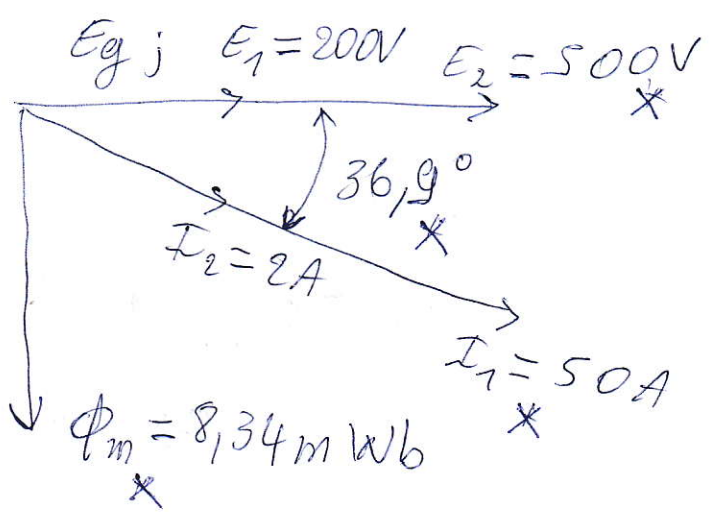 Eg j E₁ = 200V E₂ = 500V
x
36,9°
x
I₂ = 2A
I₁ = 50A
x
ϕₘ = 8,34 m Wb
x